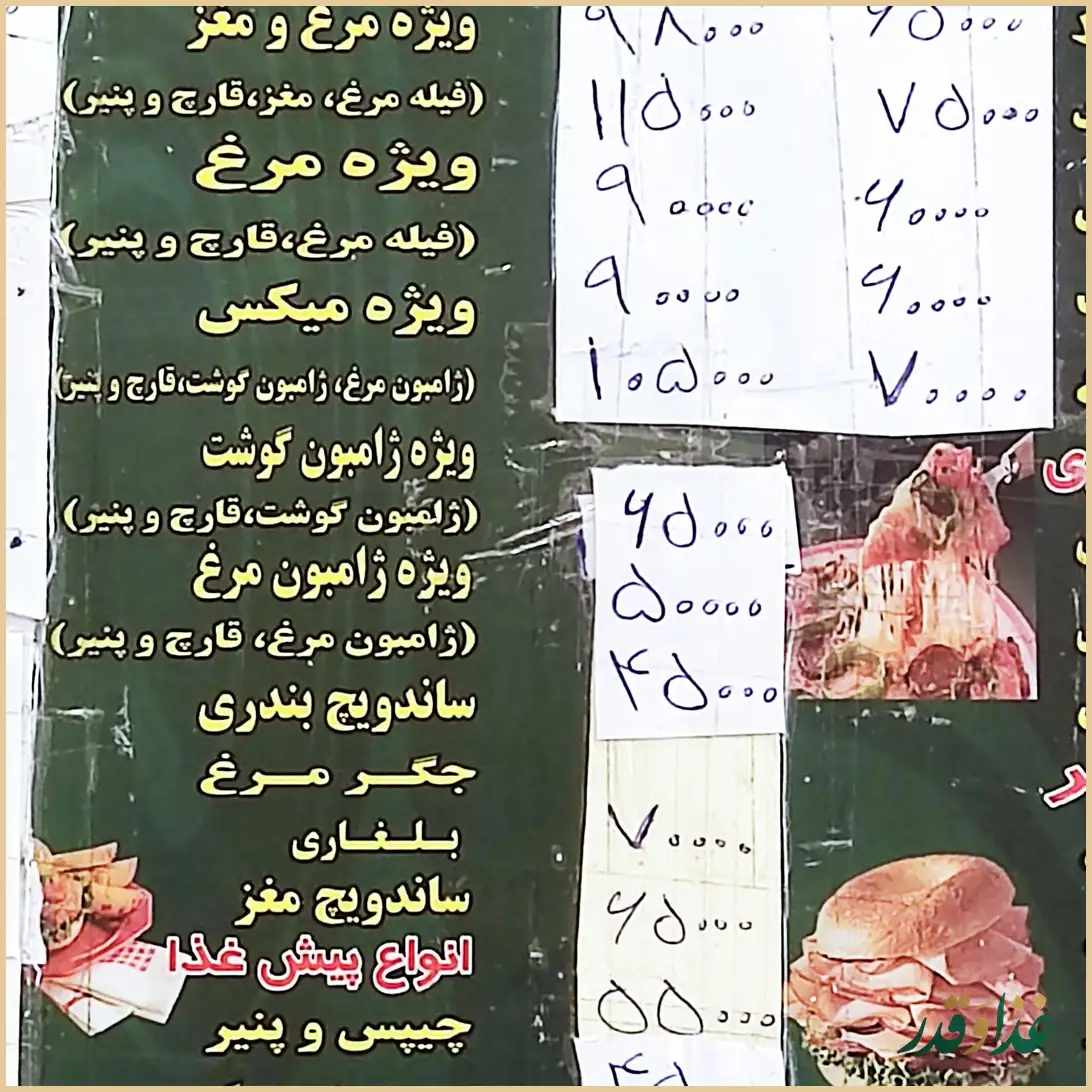 ویژه مرغ و مغز ۹۸۰۰۰ ۶۵۰۰۰
(فیله مرغ، مغز،قارچ و پنیر) ۱۱۵۰۰۰ ۷۵۰۰۰
ویژه مرغ ۹۰۰۰۰ ۶۰۰۰۰
(فیله مرغ،قارچ و پنیر)
ویژه میکس ۹۰۰۰۰ ۶۰۰۰۰
(ژامبون مرغ، ژامبون گوشت،قارچ و پنیر) ۱۰۵۰۰۰ ۷۰۰۰۰
ویژه ژامبون گوشت
(ژامبون گوشت،قارچ و پنیر) ۶۵۰۰۰
ویژه ژامبون مرغ ۵۰۰۰۰
(ژامبون مرغ، قارچ و پنیر)
ساندویچ بندری ۴۵۰۰۰
جگر مرغ
بلغاری ۷۰۰۰۰
ساندویچ مغز ۶۵۰۰۰
انواع پیش غذا
چیپس و پنیر ۵۵۰۰۰
غذاوقدر